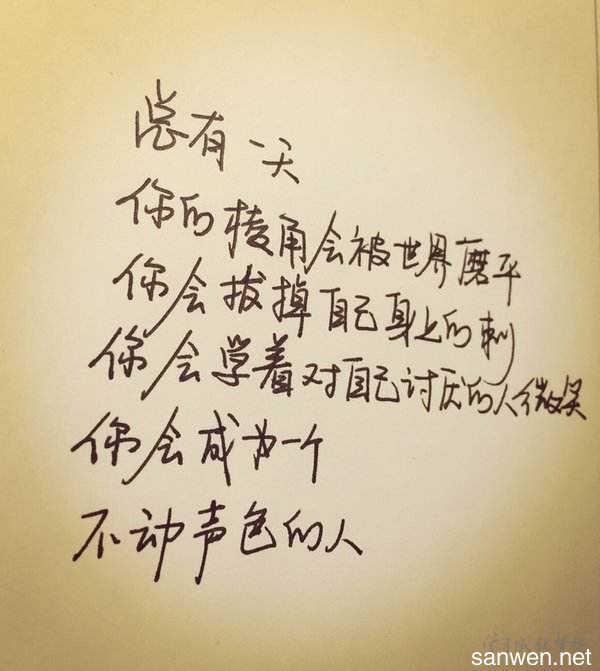 总有一天
你的棱角会被世界磨平
你会拔掉自己身上的刺
你会学着对自己讨厌的人微笑
你会成为一个
不动声色的人
sanwen.net